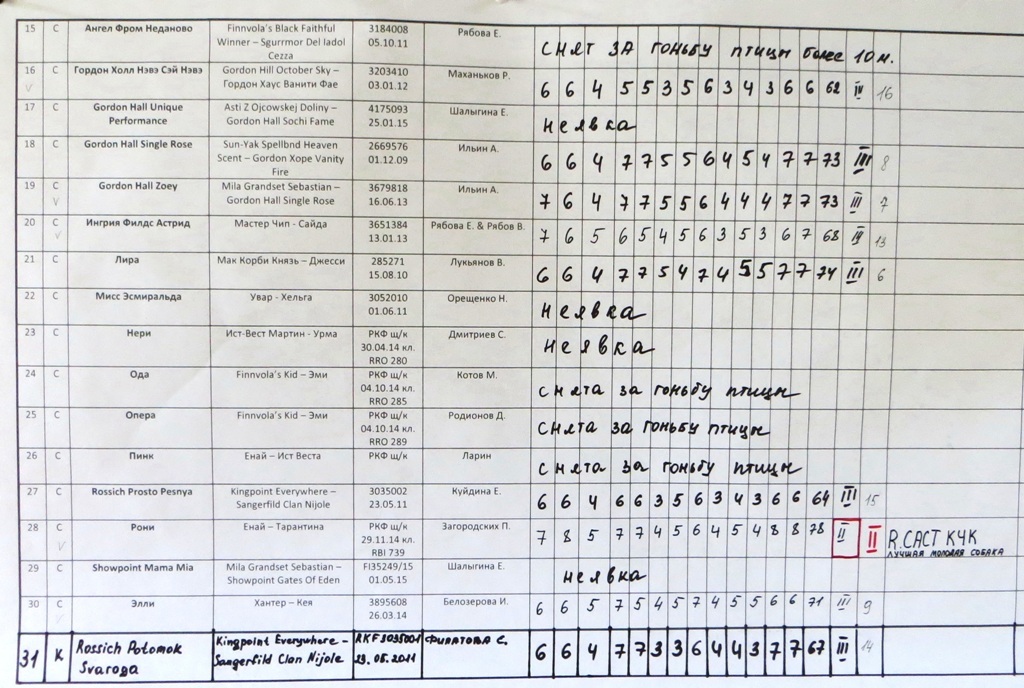 15 С Ангел Фром Неданово Finnvola's Black Faithful Winner – Sgurrmor Del Iadol Cezza 3184008 05.10.11 Рябова Е. СНЯТ ЗА ГОНЬБУ ПТИЦЫ более 10 м.
16 С V Гордон Холл Нэвэ Сэй Нэвэ Gordon Hill October Sky – Гордон Хаус Ванити Фае 3203410 03.01.12 Маханьков Р. 6 6 4 5 5 3 5 6 3 4 3 6 6 62 IV 16
17 С Gordon Hall Unique Performance Asti Z Ojcowskej Doliny – Gordon Hall Sochi Fame 4175093 25.01.15 Шалыгина Е. неявка
18 С Gordon Hall Single Rose Sun-Yak Spellbnd Heaven Scent – Gordon Xope Vanity Fire 2669576 01.12.09 Ильин А. 6 6 4 7 7 5 5 6 4 5 4 7 7 73 III 8
19 С V Gordon Hall Zoey Mila Grandset Sebastian – Gordon Hall Single Rose 3679818 16.06.13 Ильин А. 7 6 4 7 7 5 5 6 4 4 4 7 7 73 III 7
20 С V Ингрия Филдс Астрид Мастер Чип - Сайда 3651384 13.01.13 Рябова Е. & Рябов В. 7 6 5 6 5 4 5 6 3 5 3 6 7 68 13
21 С Лира Мак Корби Князь – Джесси 285271 15.08.10 Лукьянов В. 6 6 4 7 7 5 4 7 4 5 5 7 7 74 III 6
22 С Мисс Эсмиральда Увар - Хельга 3052010 01.06.11 Орещенко Н. неявка
23 С Нери Ист-Вест Мартин - Урма РКФ щ/к 30.04.14 кл. RRO 280 Дмитриев С. неявка
24 С Ода Finnvola's Kid – Эми РКФ щ/к 04.10.14 кл. RRO 285 Котов М. снята за гоньбу птицы
25 С Опера Finnvola's Kid – Эми РКФ щ/к 04.10.14 кл. RRO 289 Родионов Д. снята за гоньбу птицы
26 С Пинк Енай – Ист Веста РКФ щ/к Ларин снята за гоньбу птицы
27 С Rossich Prosto Pesnya Kingpoint Everywhere – Sangerfild Clan Nijole 3035002 23.05.11 Куйдина Е. 6 6 4 6 6 3 5 6 3 4 3 6 6 64 III 15
28 С V Рони Енай – Тарантина РКФ щ/к 29.11.14 кл. RBI 739 Загородских П. 7 8 5 7 7 4 5 6 4 5 4 8 8 78 II II R.CACT КЧК
ЛУЧШАЯ МОЛОДАЯ СОБАКА
29 С Showpoint Mama Mia Mila Grandset Sebastian – Showpoint Gates Of Eden FI35249/15 01.05.15 Шалыгина Е. неявка
30 С V Элли Хантер – Кея 3895608 26.03.14 Белозерова И. 6 6 5 7 5 4 5 7 4 5 5 6 6 71 III 9
31 К Rossich Potomok Svaroga Kingpoint Everywhere – Sangerfild Clan Nijole RKF3035001 23.05.2011 Филатова С. 6 6 4 7 7 3 3 6 4 4 3 7 7 67 III 14